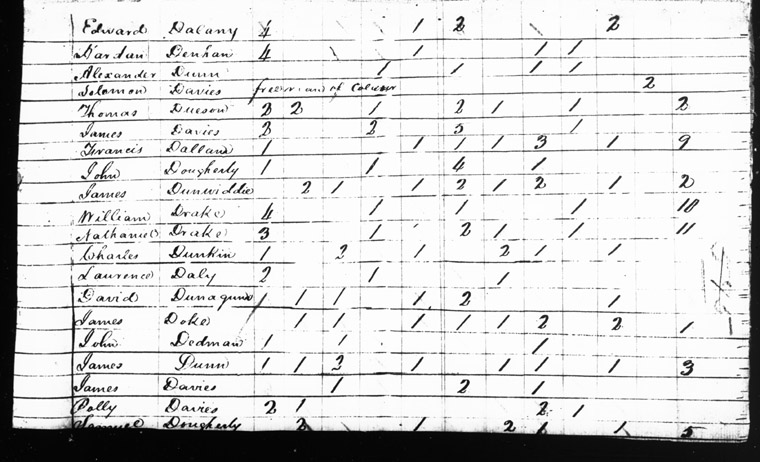 Edward Dalany 4 1 2 2
Nardan Denhan 4 1 1 1
Alexander Dunn 1 1 1 1
Solomon Davies free man of Colour 2
Thomas Dueson 2 2 1 2 1 1 2
James Davies 2 2 5 1
Francis Dallam 1 1 1 1 3 1 9
John Dougherty 1 1 4 1
James Dunwiddie 2 1 1 2 1 2 1 2
William Drake 4 1 1 1 10
Nathaniel Drake 3 1 2 1 1 11
Charles Dunkin 1 2 1 2 1 1
Laurence Daly 2 1 1
David Dunagun 1 1 1 1 2 1
James Doke 1 1 1 1 1 2 2 1
John Dedman 1 1 1
James Dunn 1 1 2 1 1 1 1 3
James Davies 1 2 1
Polly Davies 2 1 2 1
Samuel Dougherty 2 1 2 1 1 5